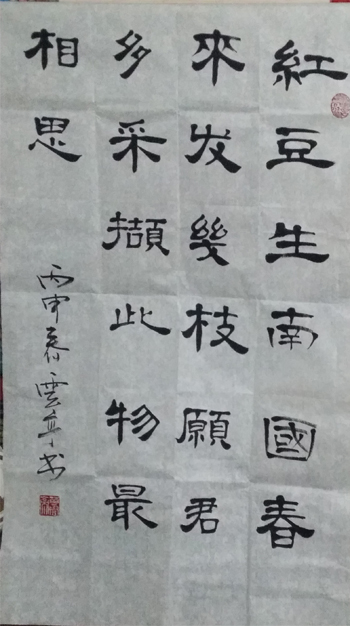 紅豆生南國春
來发幾枝願君
多采擷此物最
相思
丙申春雲亭书